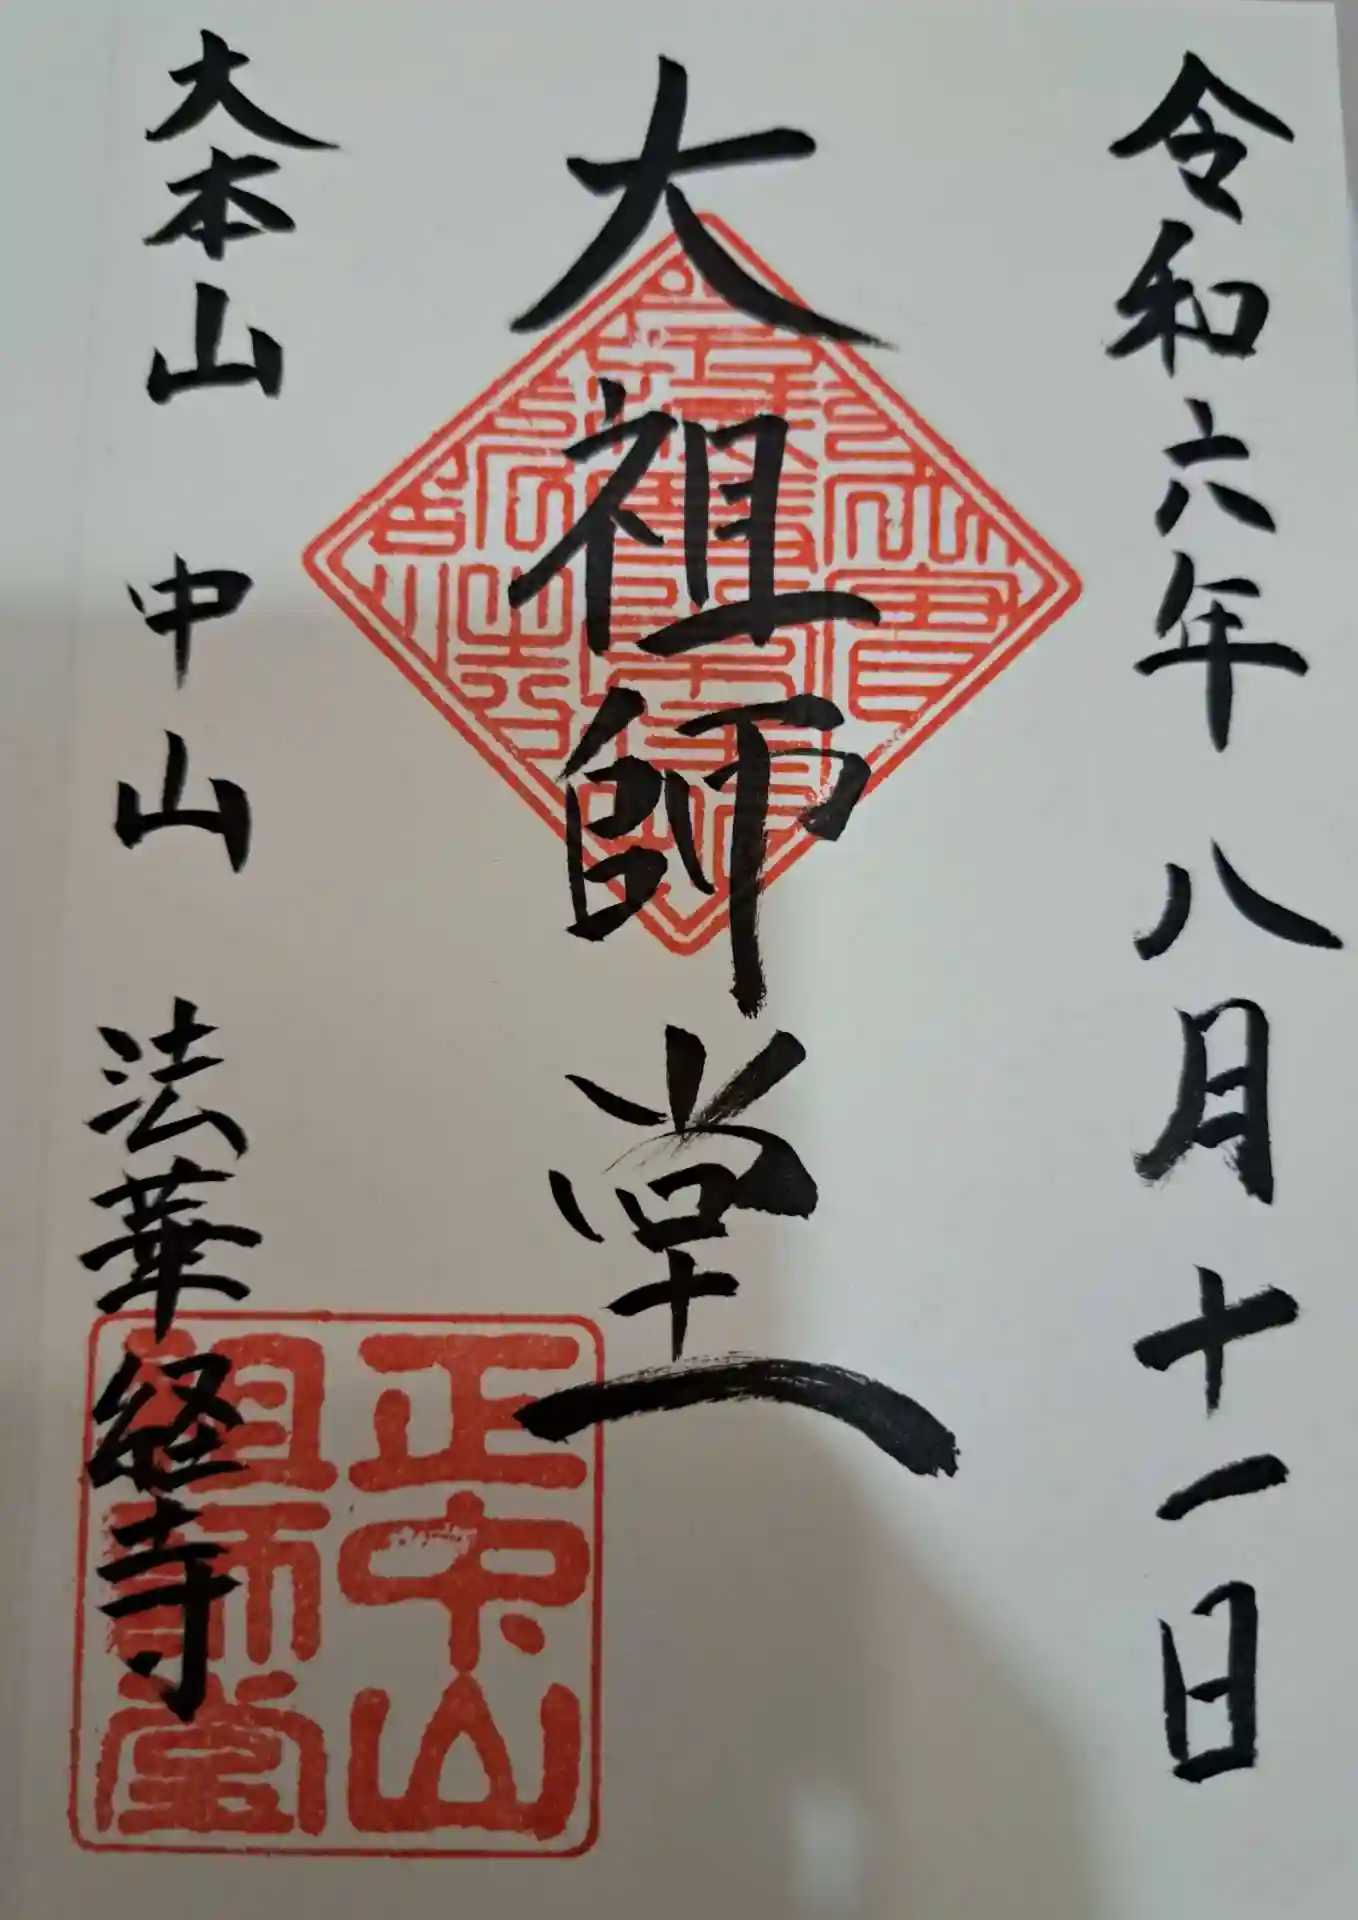 令和六年 八月十一日
大祖師堂
大本山 中山 法華経寺
正中山
祖師堂